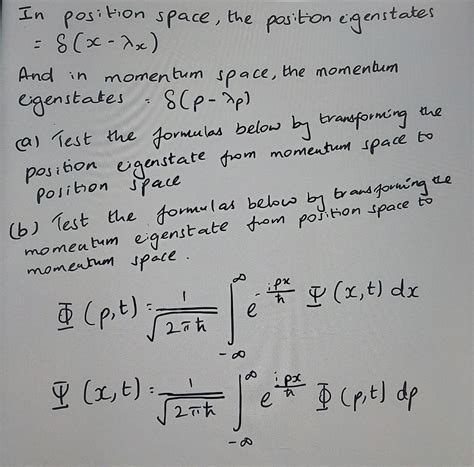 In position space, the position eigenstates
= δ(x - λₓ)
And in momentum space, the momentum
eigenstates = δ(p - λₚ)
(a) Test the formulas below by transforming the
position eigenstate from momentum space to
position space
(b) Test the formulas below by transforming the
momentum eigenstate from position space to
momentum space.
Φ(p,t) = 1/√(2πħ) ∫_{-∞}^{∞} e^{-ipx/ħ} Ψ(x,t) dx
Ψ(x,t) = 1/√(2πħ) ∫_{-∞}^{∞} e^{ipx/ħ} Φ(p,t) dp